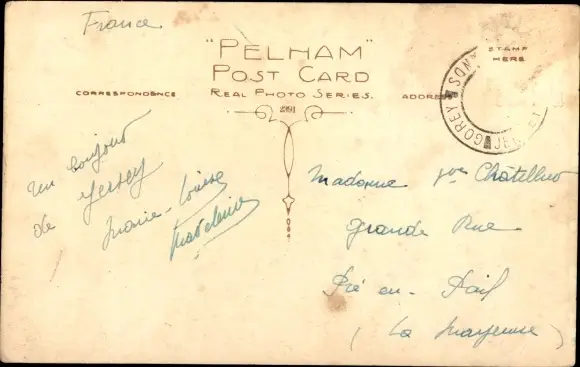 France
"PELHAM"
POST CARD
REAL PHOTO SERIES.
CORRESPONDENCE
ADDRESS
STAMP
HERE
GOREY
un bonjour
de Jersey
Marie-Louise
Madeleine
Madame Vve
Grande Rue
Pré-en-Pail
(La Mayenne)